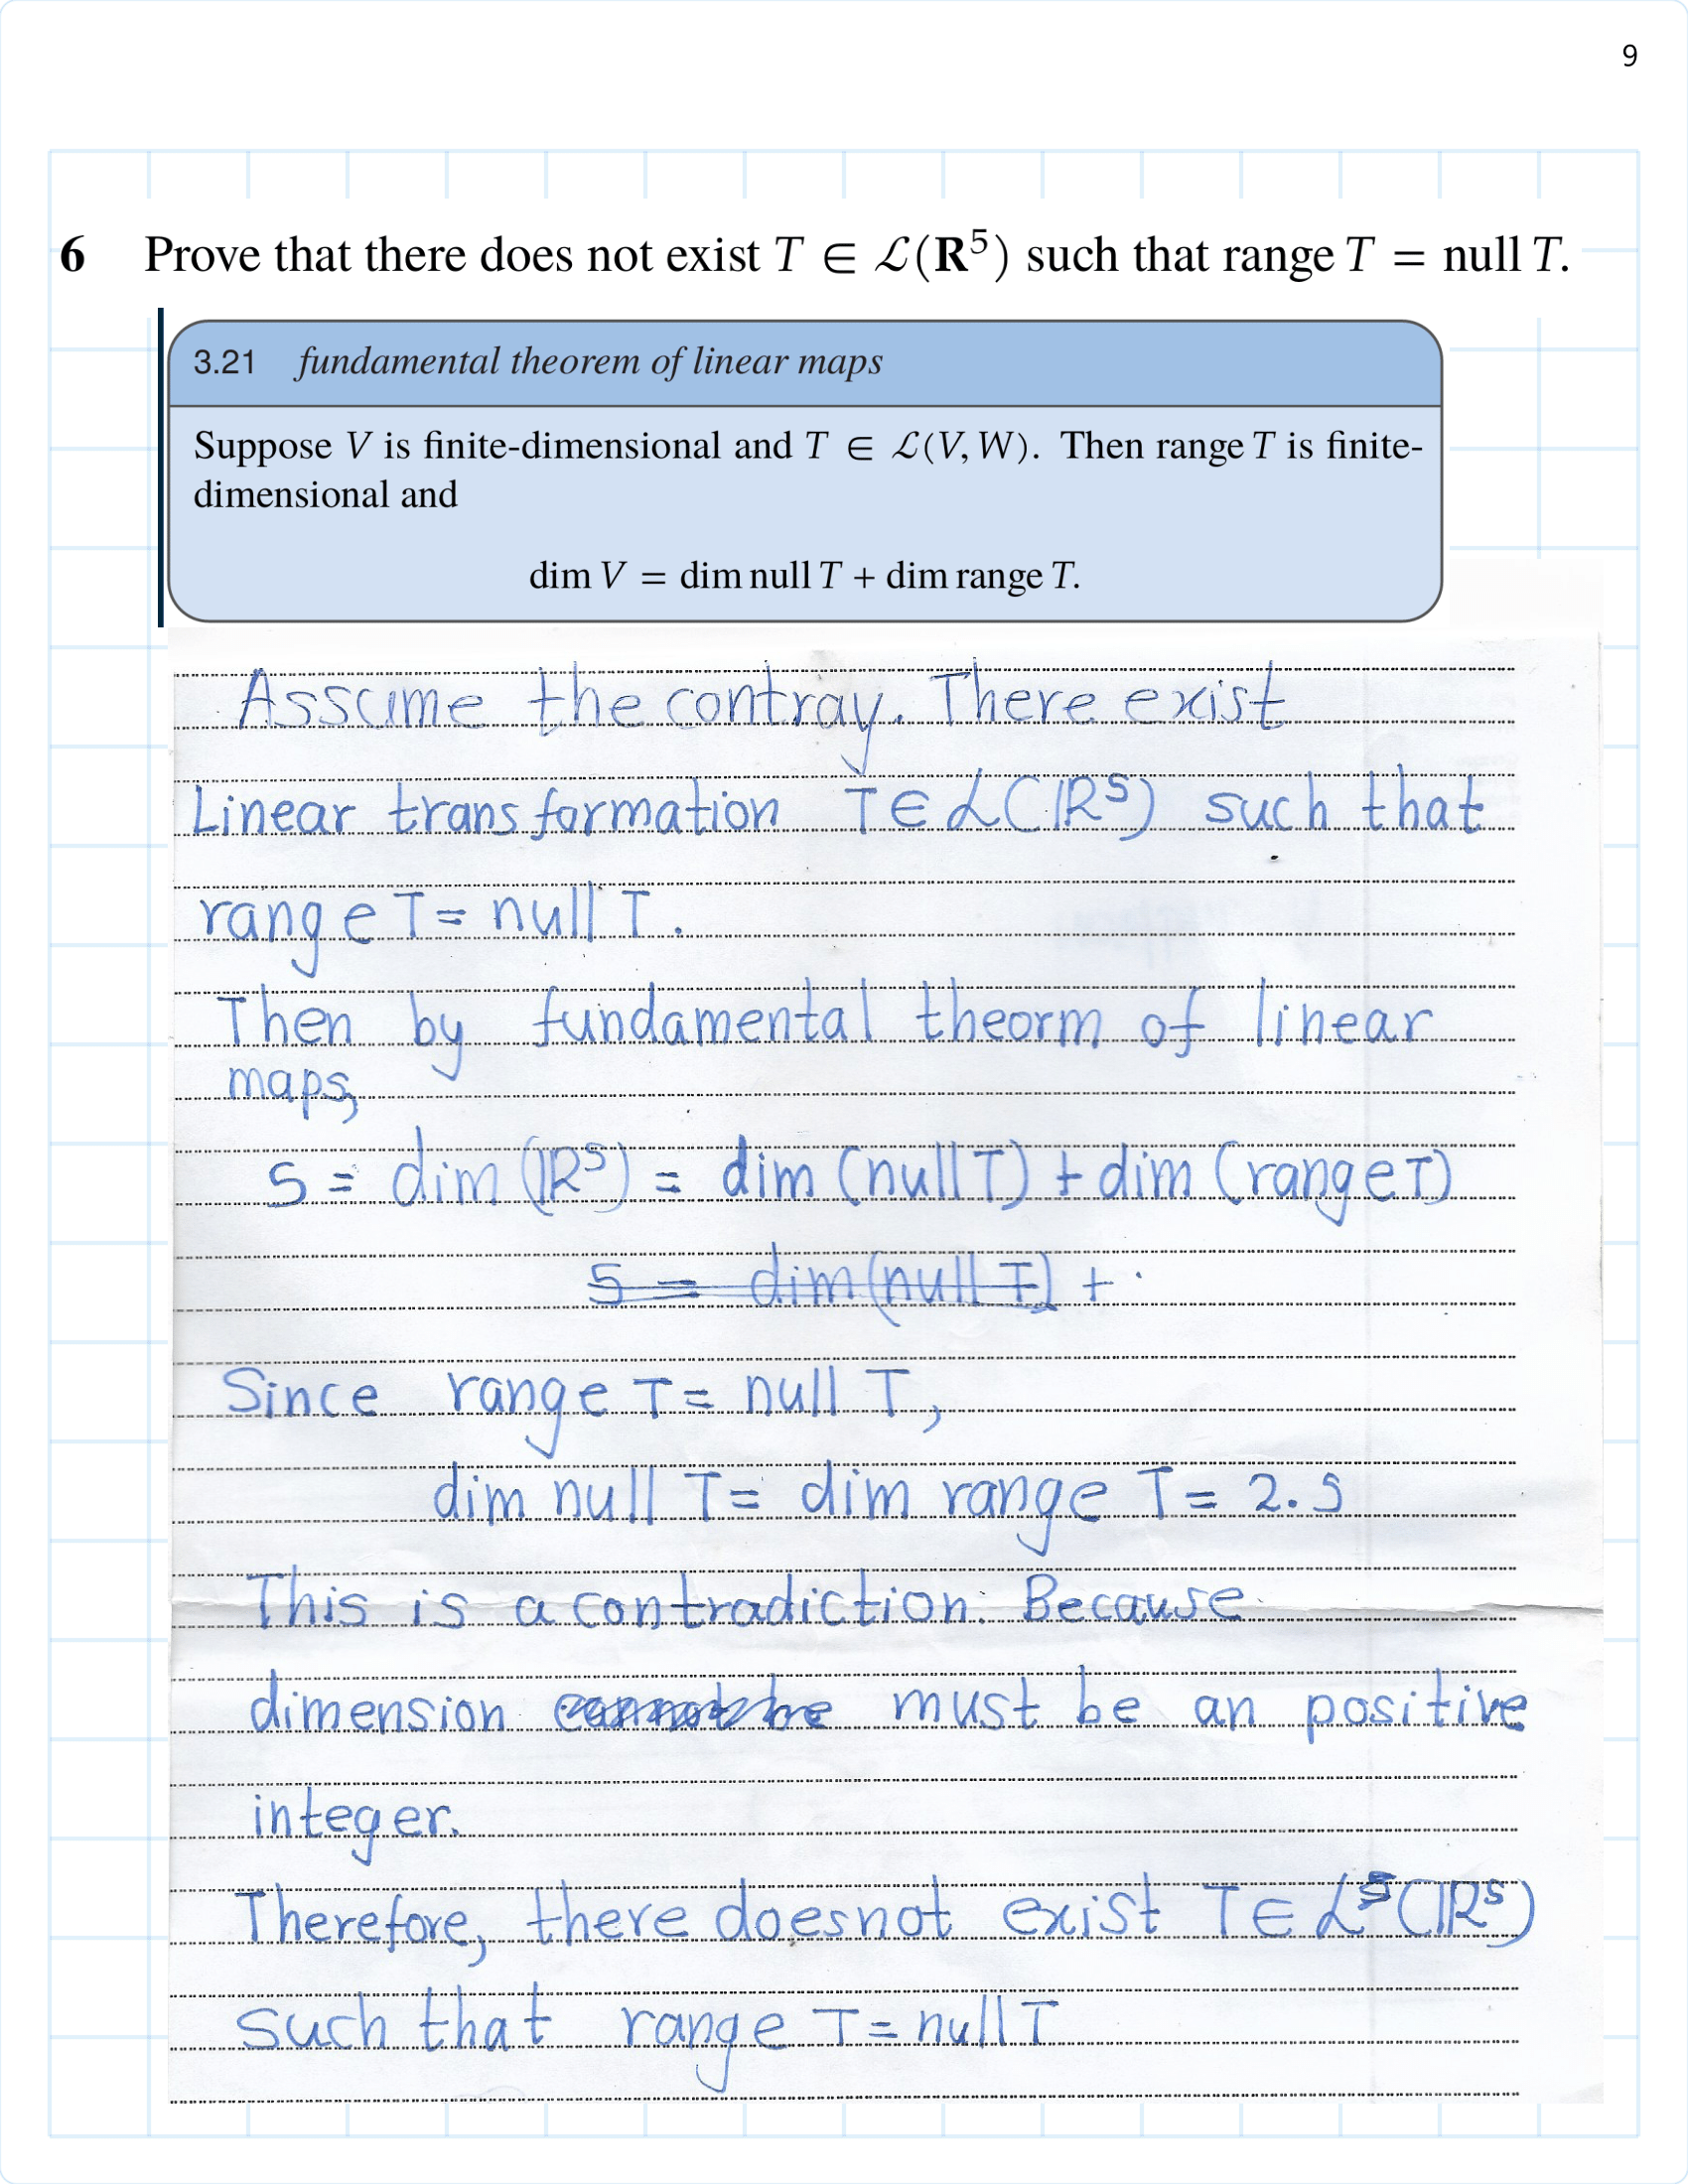 9
6 Prove that there does not exist T ∈ ℒ(R⁵) such that range T = null T.
3.21 fundamental theorem of linear maps
Suppose V is finite-dimensional and T ∈ ℒ(V, W). Then range T is finite-
dimensional and
dim V = dim null T + dim range T.
Assume the contray. There exist
Linear transformation T ∈ ℒ(ℝ⁵) such that
range T = null T.
Then by fundamental theorm of linear
maps,
5 = dim (ℝ⁵) = dim (null T) + dim (range T)
5 = dim (null T) + .
Since range T = null T,
dim null T = dim range T = 2.5
This is a contradiction. Because
dimension cannot be must be an positive
integer.
Therefore, there doesnot exist T ∈ ℒ(ℝ⁵)
such that range T = null T